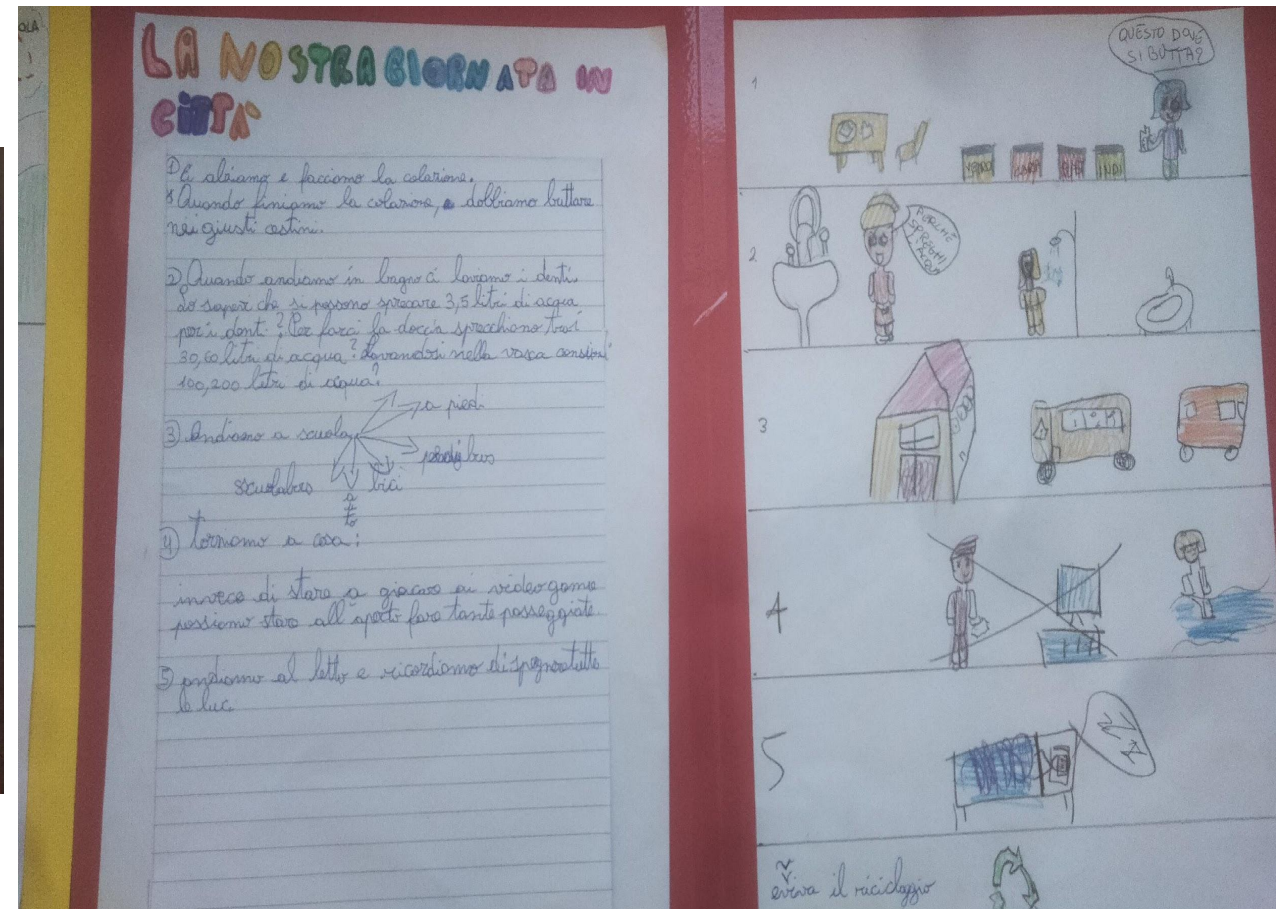 LA NOSTRA GIORNATA IN
CITTÀ
1) Ci alziamo e facciamo la colazione.
Quando finiamo la colazione, dobbiamo buttare
nei giusti cestini.
2) Quando andiamo in bagno ci laviamo i denti.
Lo sapevi che si possono sprecare 3,5 litri di acqua
per i denti? Per farci la doccia sprecchiamo trai
30,60 litri di acqua? Lavandosi nella vasca
100,200 litri di acqua?
a piedi
3) Andiamo a scuola
pedibus
scuolabus
bici
auto
4) torniamo a casa:
invece di stare a giocare ai videogame
possiamo stare all'aperto fare tante passeggiate
5) andiamo al letto e ricordiamo di spegnere tutte
le luci
QUESTO DOVE
SI BUTTA?
1
2
PERCHÈ
SPRECHI
ACQUA
3
4
5
evviva il riciclaggio